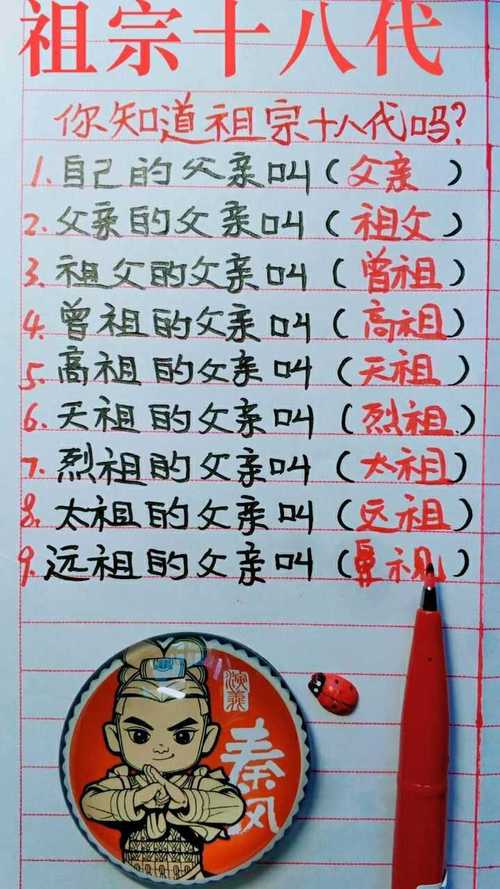 祖宗十八代
你知道祖宗十八代吗?
1.自己的父亲叫(父亲)
2.父亲的父亲叫(祖父)
3.祖父的父亲叫(曾祖)
4.曾祖的父亲叫(高祖)
5.高祖的父亲叫(天祖)
6.天祖的父亲叫(烈祖)
7.烈祖的父亲叫(太祖)
8.太祖的父亲叫(远祖)
9.远祖的父亲叫(鼻祖)
演義
秦风